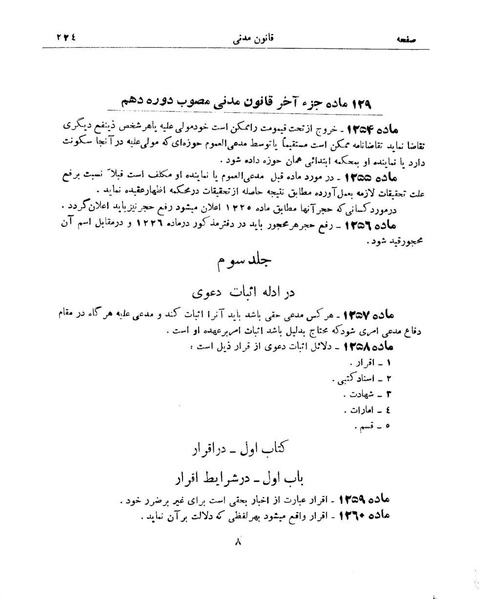 صفحه قانون مدنی ۲۲٤
۱۲۹ ماده جزء آخر قانون مدنی مصوب دوره دهم
ماده ۱۲۵۴ - خروج از تحت قیمومت را ممکن است خود مولی علیه یا هر شخص ذینفع دیگری
تقاضا نماید تقاضانامه ممکن است مستقیماً یا توسط مدعی العموم حوزه‌ای که مولی علیه در آنجا سکونت
دارد یا نماینده او بمحکمه ابتدائی همان حوزه داده شود .
ماده ۱۲۵۵ - در مورد ماده قبل مدعی العموم یا نماینده او مکلف است قبلاً نسبت برفع
علت تحقیقات لازمه بعمل آورده مطابق نتیجه حاصله از تحقیقات در محکمه اظهار عقیده نماید .
در مورد کسانی که حجر آنها مطابق ماده ۱۲۲۵ اعلان میشود رفع حجر نیز باید اعلان گردد .
ماده ۱۲۵۶ - رفع حجر هر محجور باید در دفتر مذکور در ماده ۱۲۲۶ و در مقابل اسم آن
محجور قید شود .
جلد سوم
در ادله اثبات دعوی
ماده ۱۲۵۷ - هر کس مدعی حقی باشد باید آنرا اثبات کند و مدعی علیه هر گاه در مقام
دفاع مدعی امری شود که محتاج بدلیل باشد اثبات امر برعهده او است .
ماده ۱۲۵۸ - دلائل اثبات دعوی از قرار ذیل است :
۱ - اقرار .
۲ - اسناد کتبی .
۳ - شهادت .
٤ - امارات .
۵ - قسم .
کتاب اول - در اقرار
باب اول - در شرایط اقرار
ماده ۱۲۵۹ - اقرار عبارت از اخبار بحقی است برای غیر بر ضرر خود .
ماده ۱۲۶۰ - اقرار واقع میشود بهر لفظی که دلالت بر آن نماید .
۸